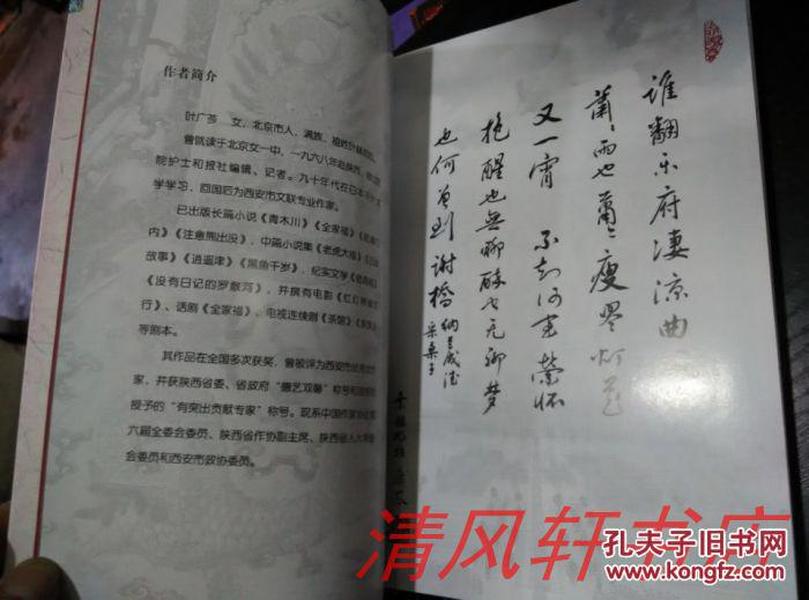 作者简介
叶广芩 女,北京市人,满族,祖姓叶赫那拉。
曾就读于北京女一中,一九六八年赴陕西,
院护士和报社编辑、记者。九十年代在日本
学学习,回国后为西安市文联专业作家。
已出版长篇小说《青木川》《全家福》
内》《注意熊出没》,中篇小说集《老虎大福》
故事》《逍遥津》《黑鱼千岁》,纪实文学
《没有日记的罗敷河》,并撰有电影《红灯
行》、话剧《全家福》、电视连续剧《茶馆》
等剧本。
其作品在全国多次获奖,曾被评为西安市
家,并获陕西省委、省政府“德艺双馨”称号和
授予的“有突出贡献专家”称号。现系中国作家协会
六届全委会委员、陕西省作协副主席、陕西省人大
会委员和西安市政协委员。
谁翻乐府凄凉曲
萧萧雨也萧萧瘦尽灯花
又一宵 不知何事萦怀
抱醒也无聊醉也无聊梦
也何曾到谢桥 纳兰成德
采桑子
清风轩书店
孔夫子旧书网
www.kongfz.com